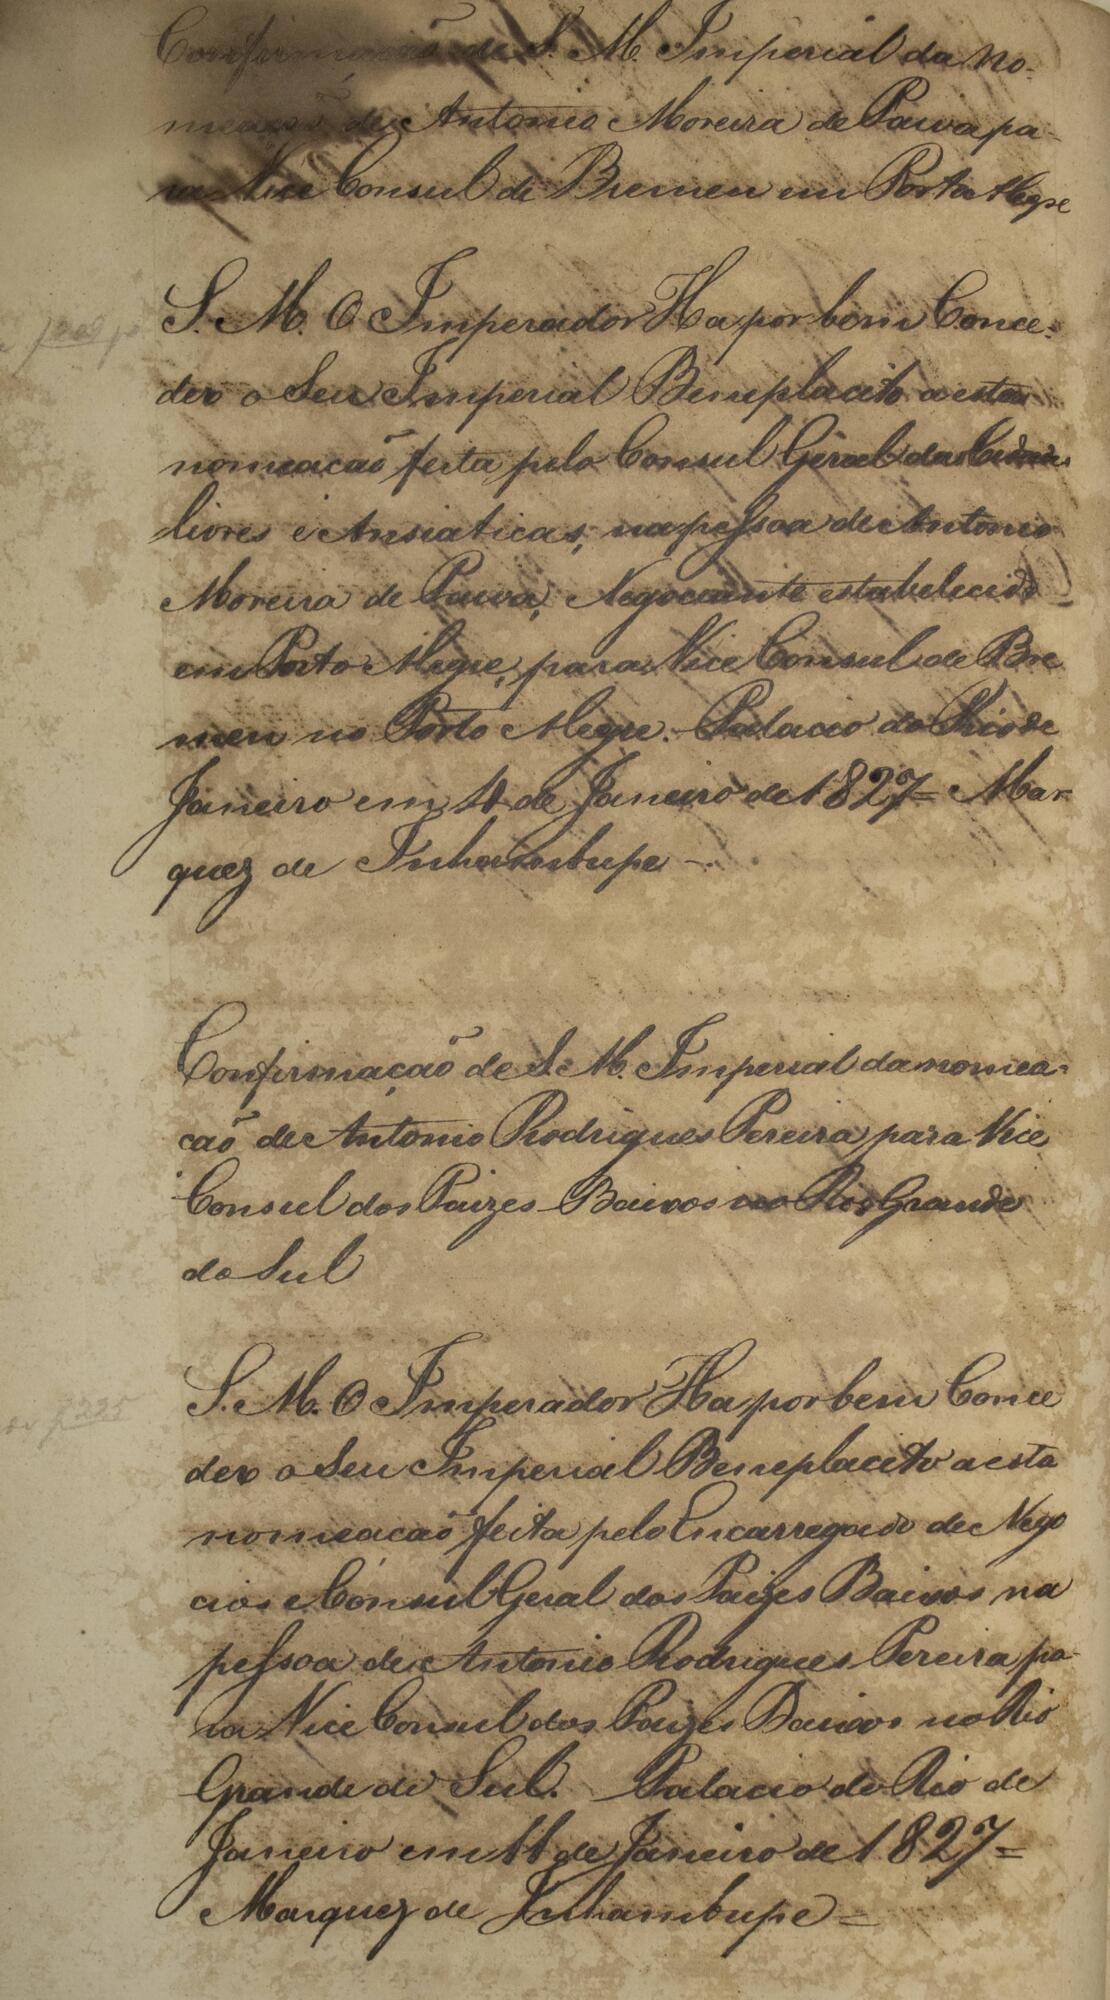 Confirmação de S. M. Imperial da no-
meação de Antonio Moreira de Paiva pa-
ra Vice Consul de Bremen em Porto Alegre
S. M. O Imperador Ha por bem Conce-
der o Seu Imperial Beneplacito a esta
nomeacaõ feita pelo Consul Geral das Cidades
livres e Anseaticas, na pessoa de Antonio
Moreira de Paiva, Negociante estabelecido
em Porto Alegre, para Vice Consul de Bre
men no Porto Alegre. Palacio do Rio de
Janeiro em 11 de Janeiro de 1827= Mar-
quez de Inhambupe -.
Confirmaçaõ de S. M. Imperial da nomea-
caõ de Antonio Rodrigues Pereira para Vice
Consul dos Paizes Baixos no Rio Grande
do Sul
S. M. O Imperador Ha por bem Conce
der o Seu Imperial Beneplacito a esta
nomeacaõ feita pelo Encarregado de Nego
cios e Consul Geral dos Paizes Baixos na
pessoa de Antonio Rodrigues Pereira pa-
ra Vice Consul dos Paizes Baixos no Rio
Grande do Sul. Palacio do Rio de
Janeiro em 11 de Janeiro de 1827=
Marquez de Inhambupe=